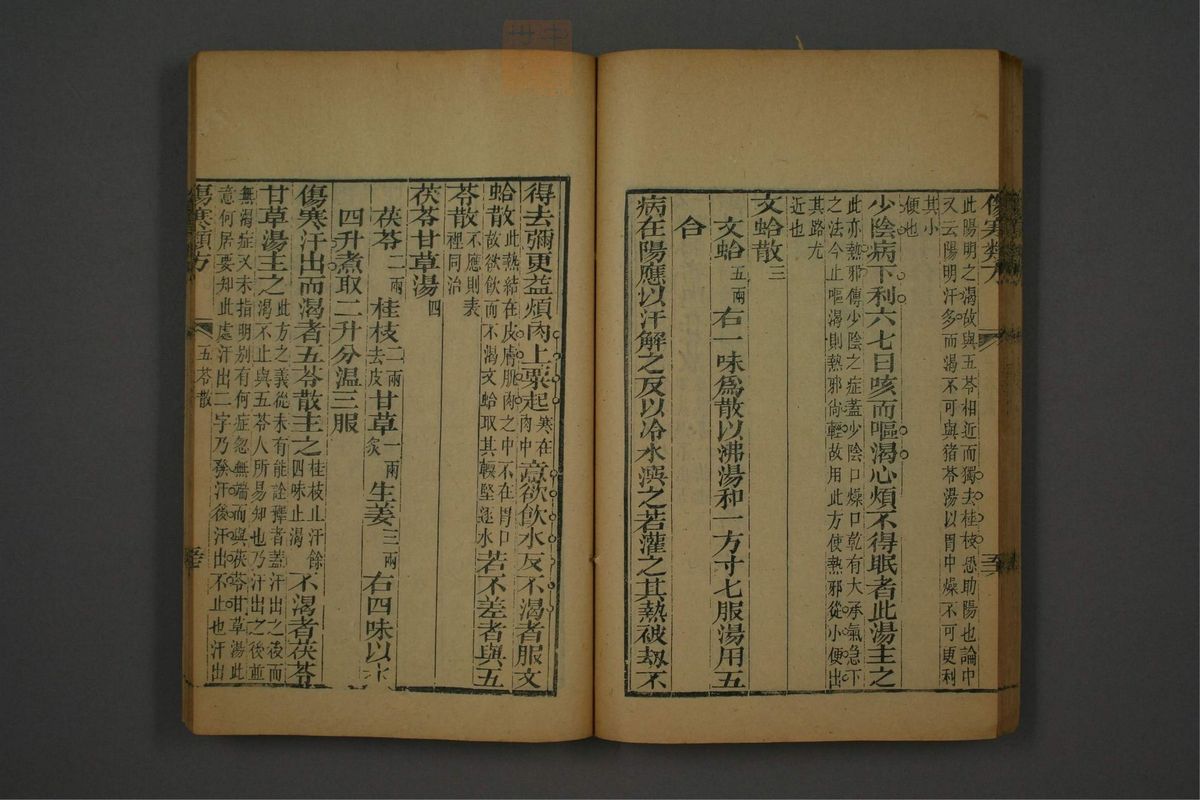 此陽明之渴故與五苓相近而獨去桂枝恐助陽也論中
又云陽明汗多而渴不可與猪苓湯以胃中燥不可更利
其小
便也
少陰病下利六七日咳而嘔渴心煩不得眠者此湯主之
此亦熱邪傳少陰之症蓋少陰口燥口乾有大承氣急下
之法今止嘔渴則熱邪尚輕故用此方使熱邪從小便出
其路尤
近也
文蛤散三
文蛤五兩 右一味爲散以沸湯和一方寸匕服湯用五
合
病在陽應以汗解之反以冷水潠之若灌之其熱被劫不
得去彌更益煩肉上粟起寒在肉中意欲飲水反不渴者服文
蛤散此熱結在皮膚肌肉之中不在胃口故欲飲而不渴文蛤取其軟堅逐水若不差者與五
苓散不應則表裡同治
茯苓甘草湯四
茯苓二兩 桂枝二兩去皮 甘草一兩炙 生姜三兩 右四味以水
四升煮取二升分温三服
傷寒汗出而渴者五苓散主之桂枝止汗餘四味止渴不渴者茯苓
甘草湯主之此方之義從未有能詮釋者蓋汗出之後而渴不止與五苓人所易知也乃汗出之後並
無渴症又未指明别有何症忽無端而與茯苓甘草湯此
意何居要知此處汗出二字乃發汗後汗出不止也汗出
傷寒類方
五苓散